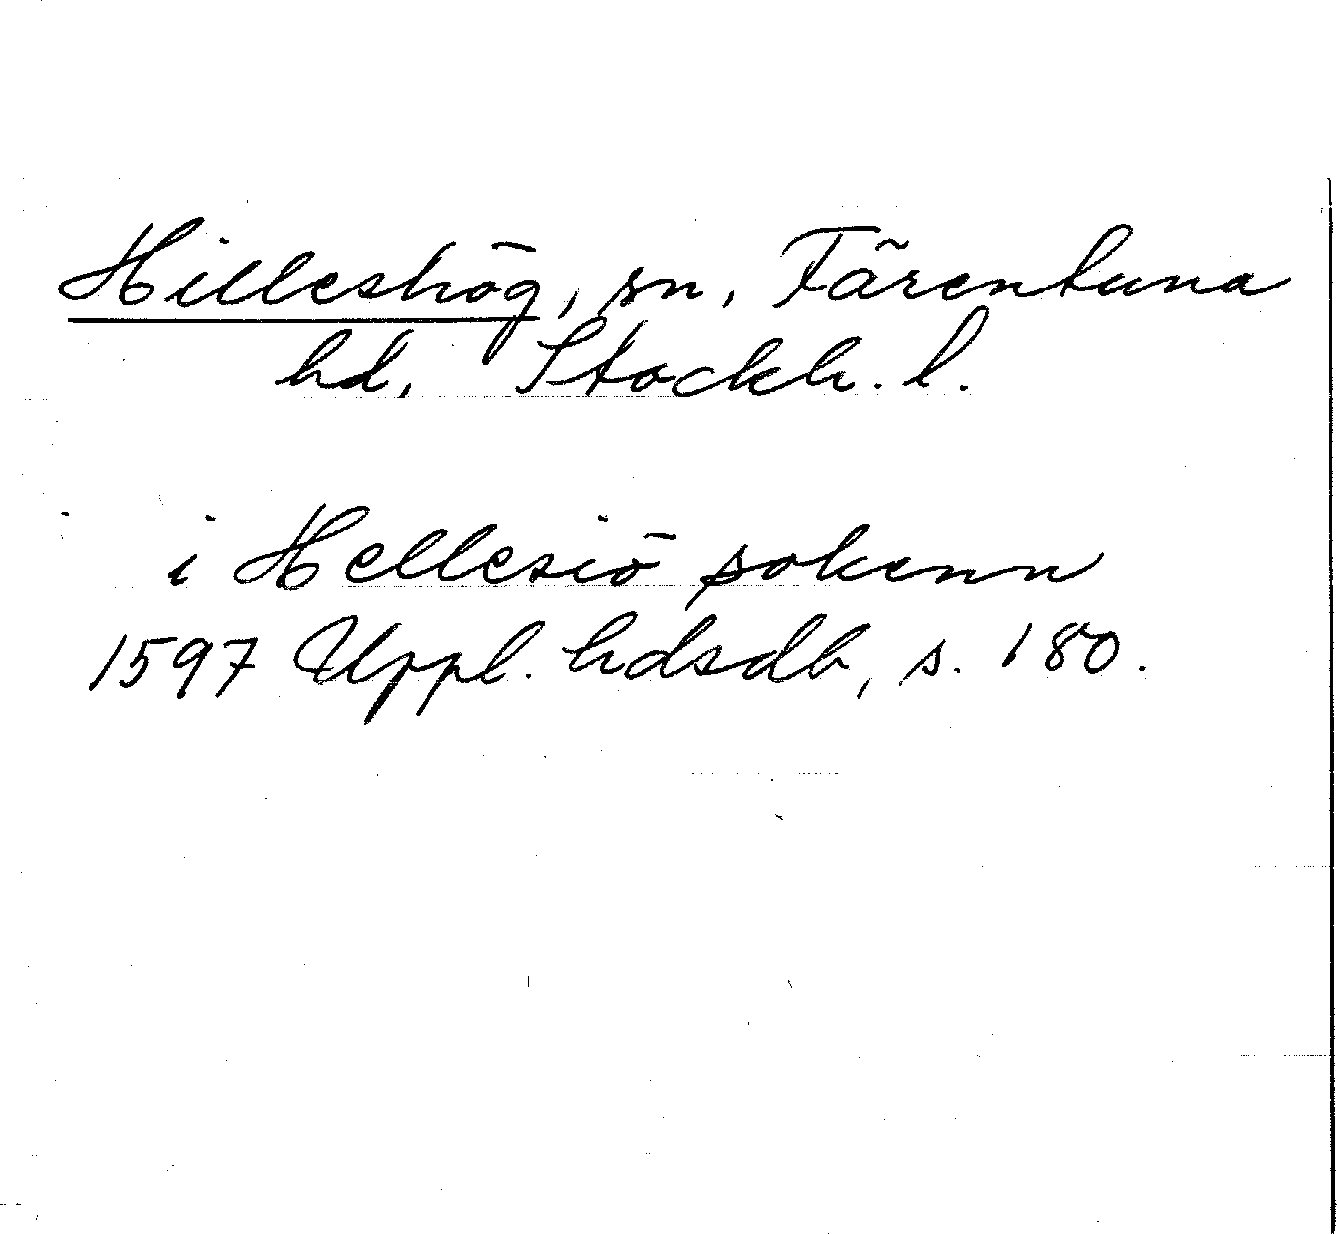 Hilleshög, sn, Färentuna
hd, Stockh. l.
i Hellesiö sokenn
1597 Uppl. hdsdb, s. 180.